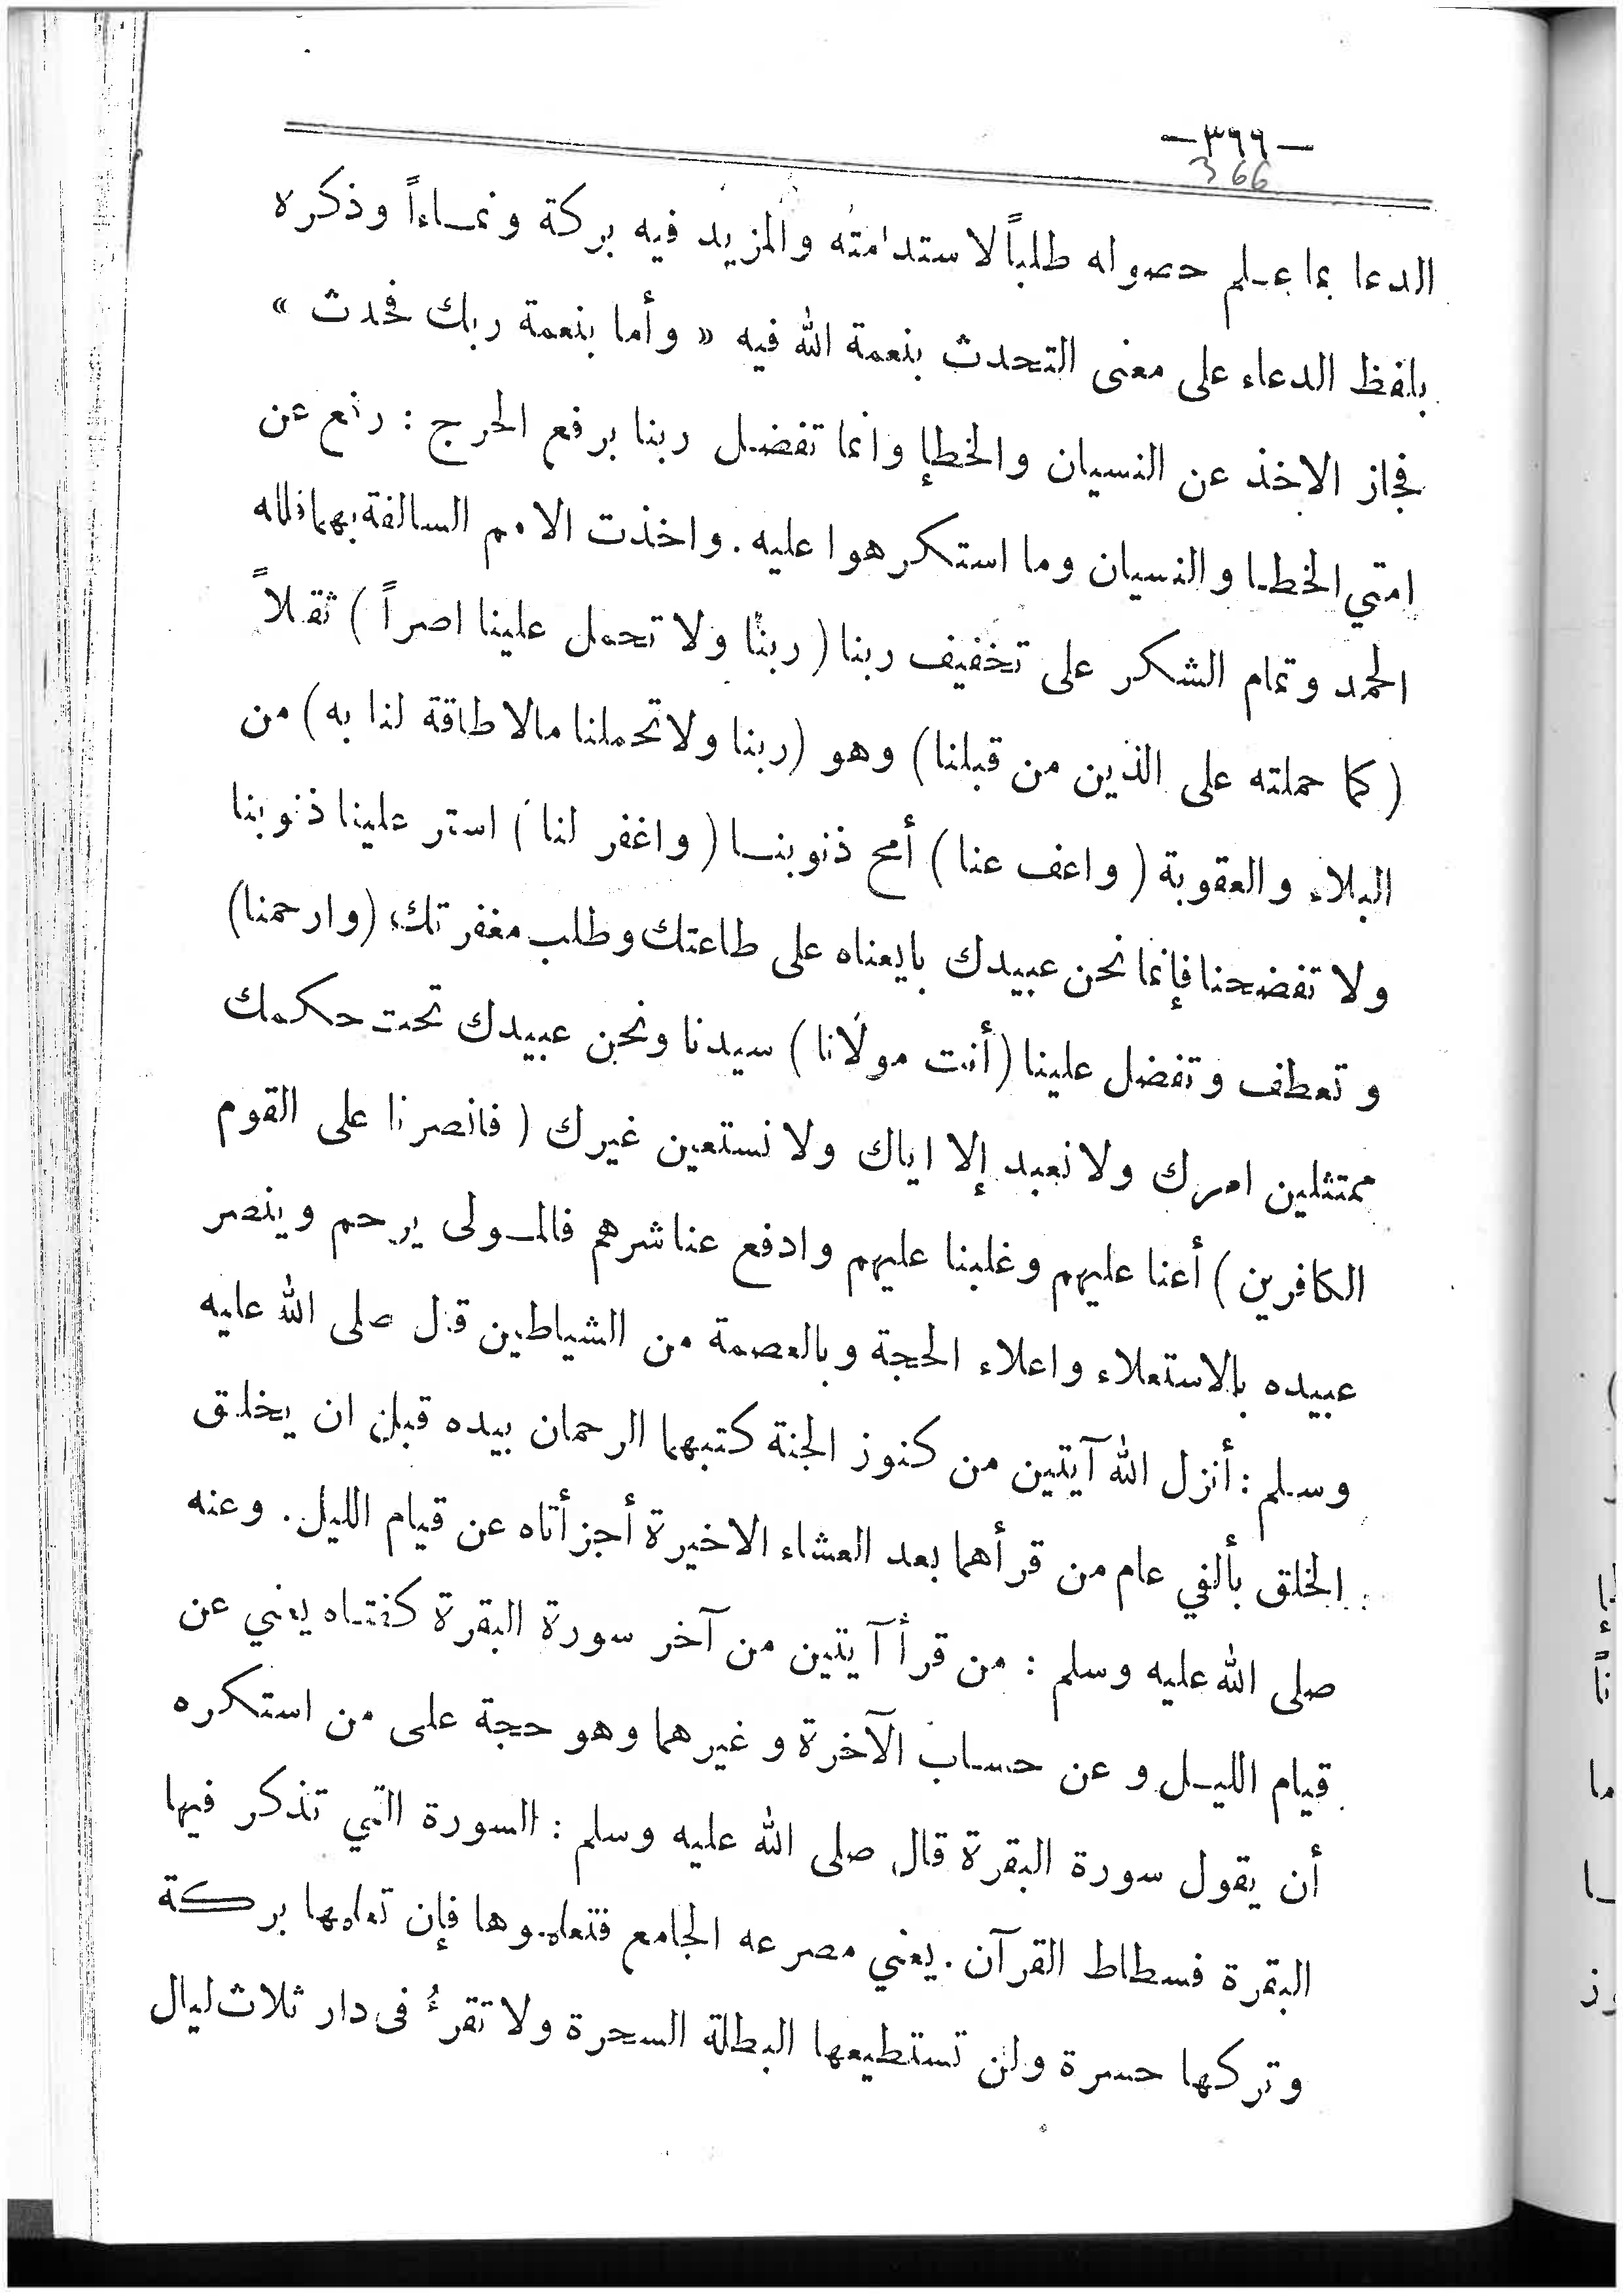 —٣٦٦—
366
الدعا بما علم حصوله طلباً لاستدامته والمزيد فيه بركة ونمـاءاً وذكره
بلفظ الدعاء على معنى التحدث بنعمة الله فيه « وأما بنعمة ربك فحدث »
فجاز الاخذ عن النسيان والخطإ وانما تفضل ربنا برفع الحرج : رفع عن
امتي الخطا والنسيان وما استكرهوا عليه . واخذت الامم السالفة بهما فلله
الحمد وتمام الشكر على تخفيف ربنا ( ربنا ولا تحمل علينا اصراً ) ثقلاً
( كما حملته على الذين من قبلنا ) وهو ( ربنا ولا تحملنا مالا طاقة لنا به ) من
البلاء والعقوبة ( واعف عنا ) أمح ذنوبنـا ( واغفر لنا ) استر علينا ذنوبنا
ولا تفضحنا فإنما نحن عبيدك بايعناه على طاعتك وطلب مغفرتك ( وارحمنا )
وتعطف وتفضل علينا ( أنت مولانا ) سيدنا ونحن عبيدك تحت حكمك
ممتثلين امرك ولا نعبد إلا اياك ولا نستعين غيرك ( فانصرنا على القوم
الكافرين ) أعنا عليهم وغلبنا عليهم وادفع عنا شرهم فالمـولى يرحم وينصر
عبيده بالاستعلاء واعلاء الحجة وبالعصمة من الشياطين قال صلى الله عليه
وسلم : أنزل الله آيتين من كنوز الجنة كتبهما الرحمان بيده قبل ان يخلق
الخلق بألفي عام من قرأهما بعد العشاء الاخيرة أجزأتاه عن قيام الليل . وعنه
صلى الله عليه وسلم : من قرأ آيتين من آخر سورة البقرة كفتاه يعني عن
قيام الليـل وعن حساب الآخرة وغيرهما وهو حجة على من استكره
أن يقول سورة البقرة قال صلى الله عليه وسلم : السورة التي تذكر فيها
البقرة فسطاط القرآن . يعني مصرعه الجامع فتعلموها فإن تعلمها بركة
وتركها حسرة ولن تستطيعها البطلة السحرة ولا تقرءُ فى دار ثلاث ليال